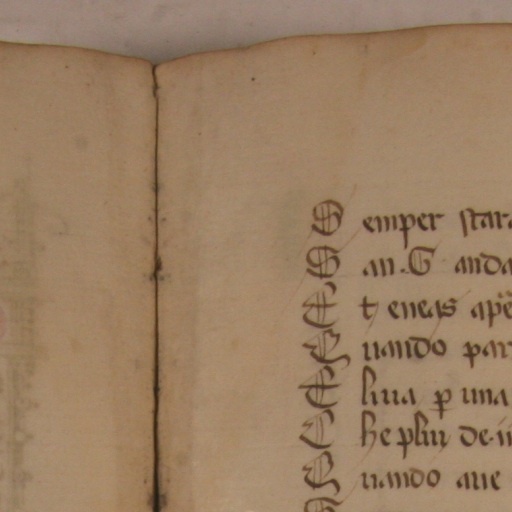 Semper star
San. G anda
Et eneas apē
Quando par
Eliua ꝑ una
Che pliu de
Quando aue